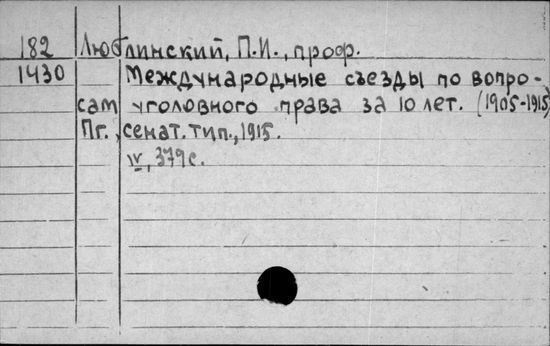 182 Люблинский, П.И., проф.
1430 Международные съезды по вопро-
сам уголовного права за 10 лет. (1905-1915)
Пг., сенат. тип., 1915.
IV, 379 с.